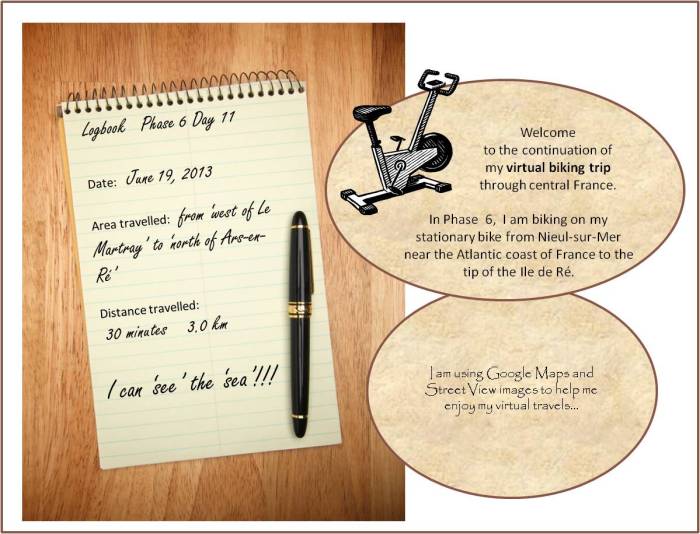 Logbook Phase 6 Day 11
Date: June 19, 2013
Area travelled: from 'west of Le
Martray' to 'north of Ars-en-
Ré'
Distance travelled:
30 minutes 3.0 km
I can 'see' the 'sea'!!!
Welcome
to the continuation of
my virtual biking trip
through central France.
In Phase 6, I am biking on my
stationary bike from Nieul-sur-Mer
near the Atlantic coast of France to the
tip of the Ile de Ré.
I am using Google Maps and
Street View images to help me
enjoy my virtual travels...